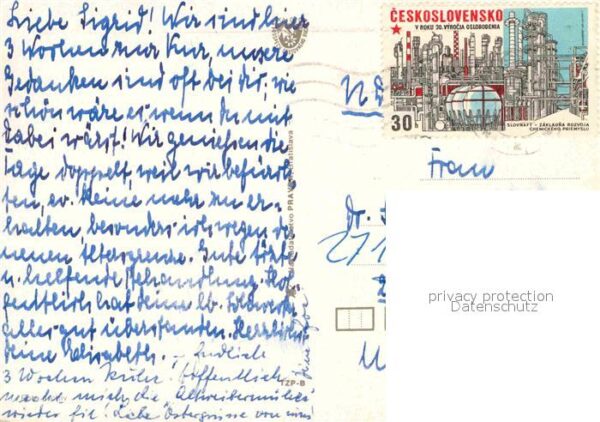 Liebe Sigrid! Wir sind hier
3 Wochen zur Kur, unsere
Gedanken sind oft bei dir, wie
schön wäre es, wenn du mit
dabei wärst! Wir genießen die
Tage doppelt, weil wir befürch-
ten, keine mehr zu er-
halten, besonders ich wegen der
neuen Altersgrenze. Gute Ärzte
u. helfende Behandlung. Hof-
fentlich hat deine lb.
alles gut überstanden. Herzlichst
deine Elisabeth. – Endlich
3 Wochen Kur. Hoffentlich
macht mich die
wieder fit! Liebe Ostergrüsse von
deine
ČESKOSLOVENSKO
V ROKU 30. VÝROČIA OSLOBODENIA
30h
SLOVNAFT - ZÁKLADŇA ROZVOJA
CHEMICKÉHO PRIEMYSLU
Frau
Dr.
271
TZP-B
privacy protection
Datenschutz